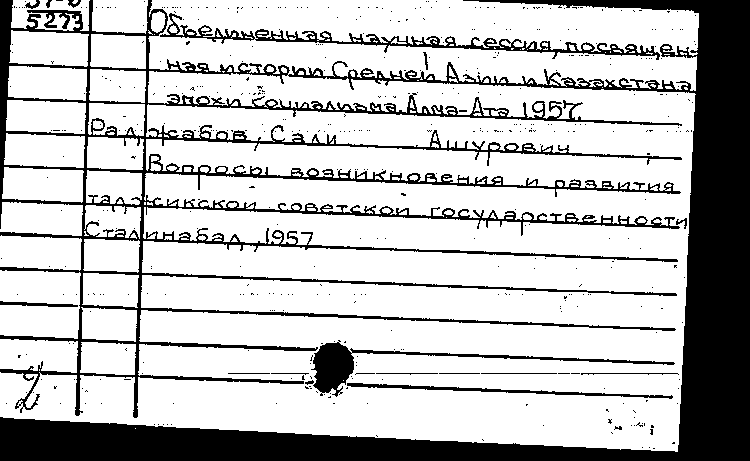 5273
Объединенная научная сессия, посвящен-
ная истории Средней Азии и Казахстана
эпохи социализма. Алма-Ата 1957.
Раджабов, Сали Ашурович
Вопросы возникновения и развития
таджикской советской государственности
Сталинабад, 1957